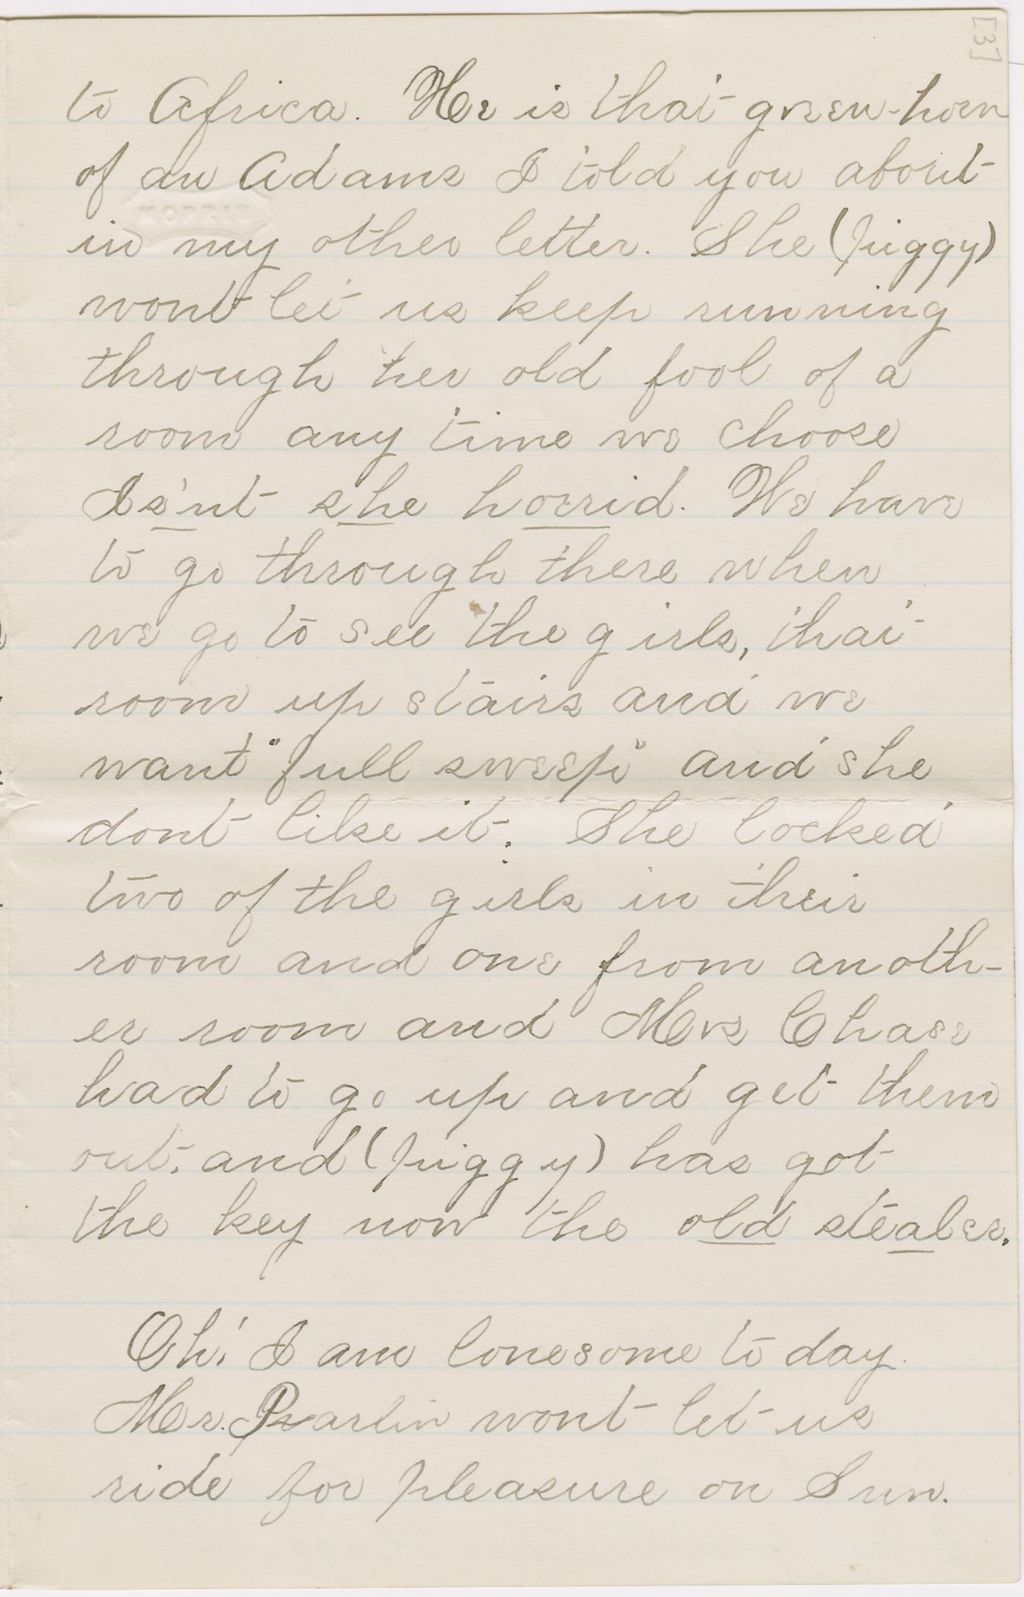 [3]
to Africa. He is that green-horn
of an Adams I told you about
in my other letter. She (Piggy)
wont let us keep running
through her old fool of a
room any time we choose
Is'nt she horrid. We have
to go through there when
we go to see the girls, that
room up stairs and we
want "full sweep" and she
dont like it. She locked
two of the girls in their
room and one from anoth-
er room and Mrs Chase
had to go up and get them
out. and (Piggy) has got
the key now the old stealer.
Oh! I am lonesome to day.
Mr. Parlin wont let us
ride for pleasure on Sun.